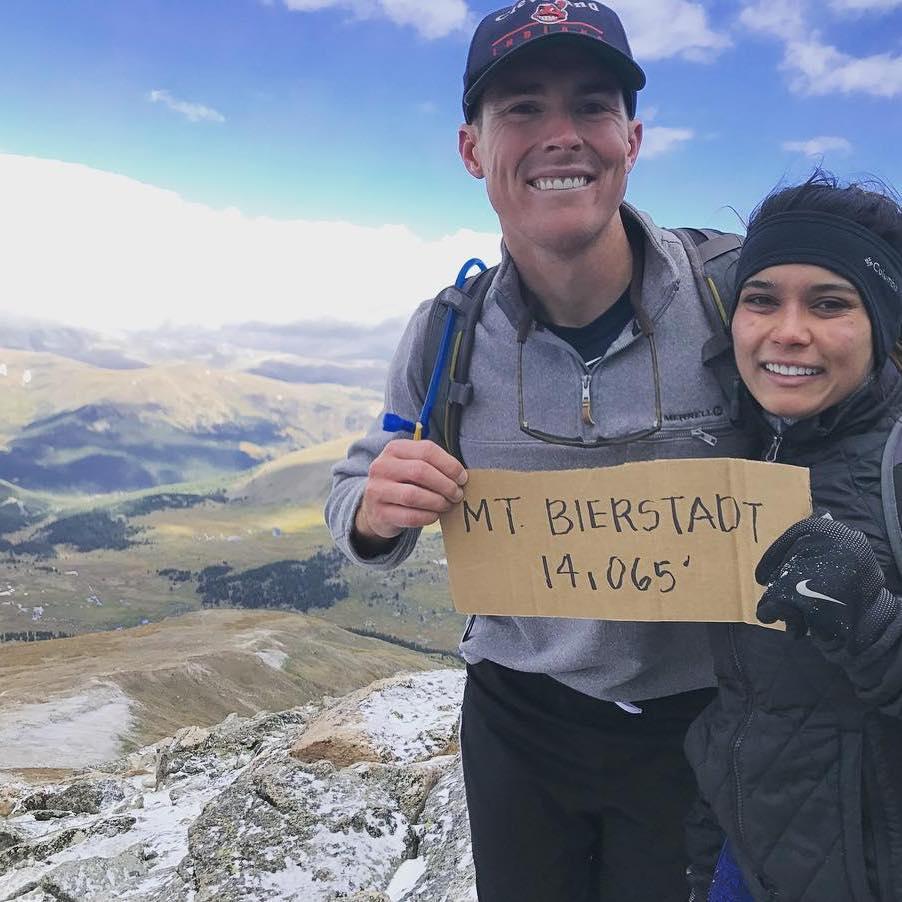 Cleveland
INDIANS
Columbia
MERRELL
MT. BIERSTADT
14,065'